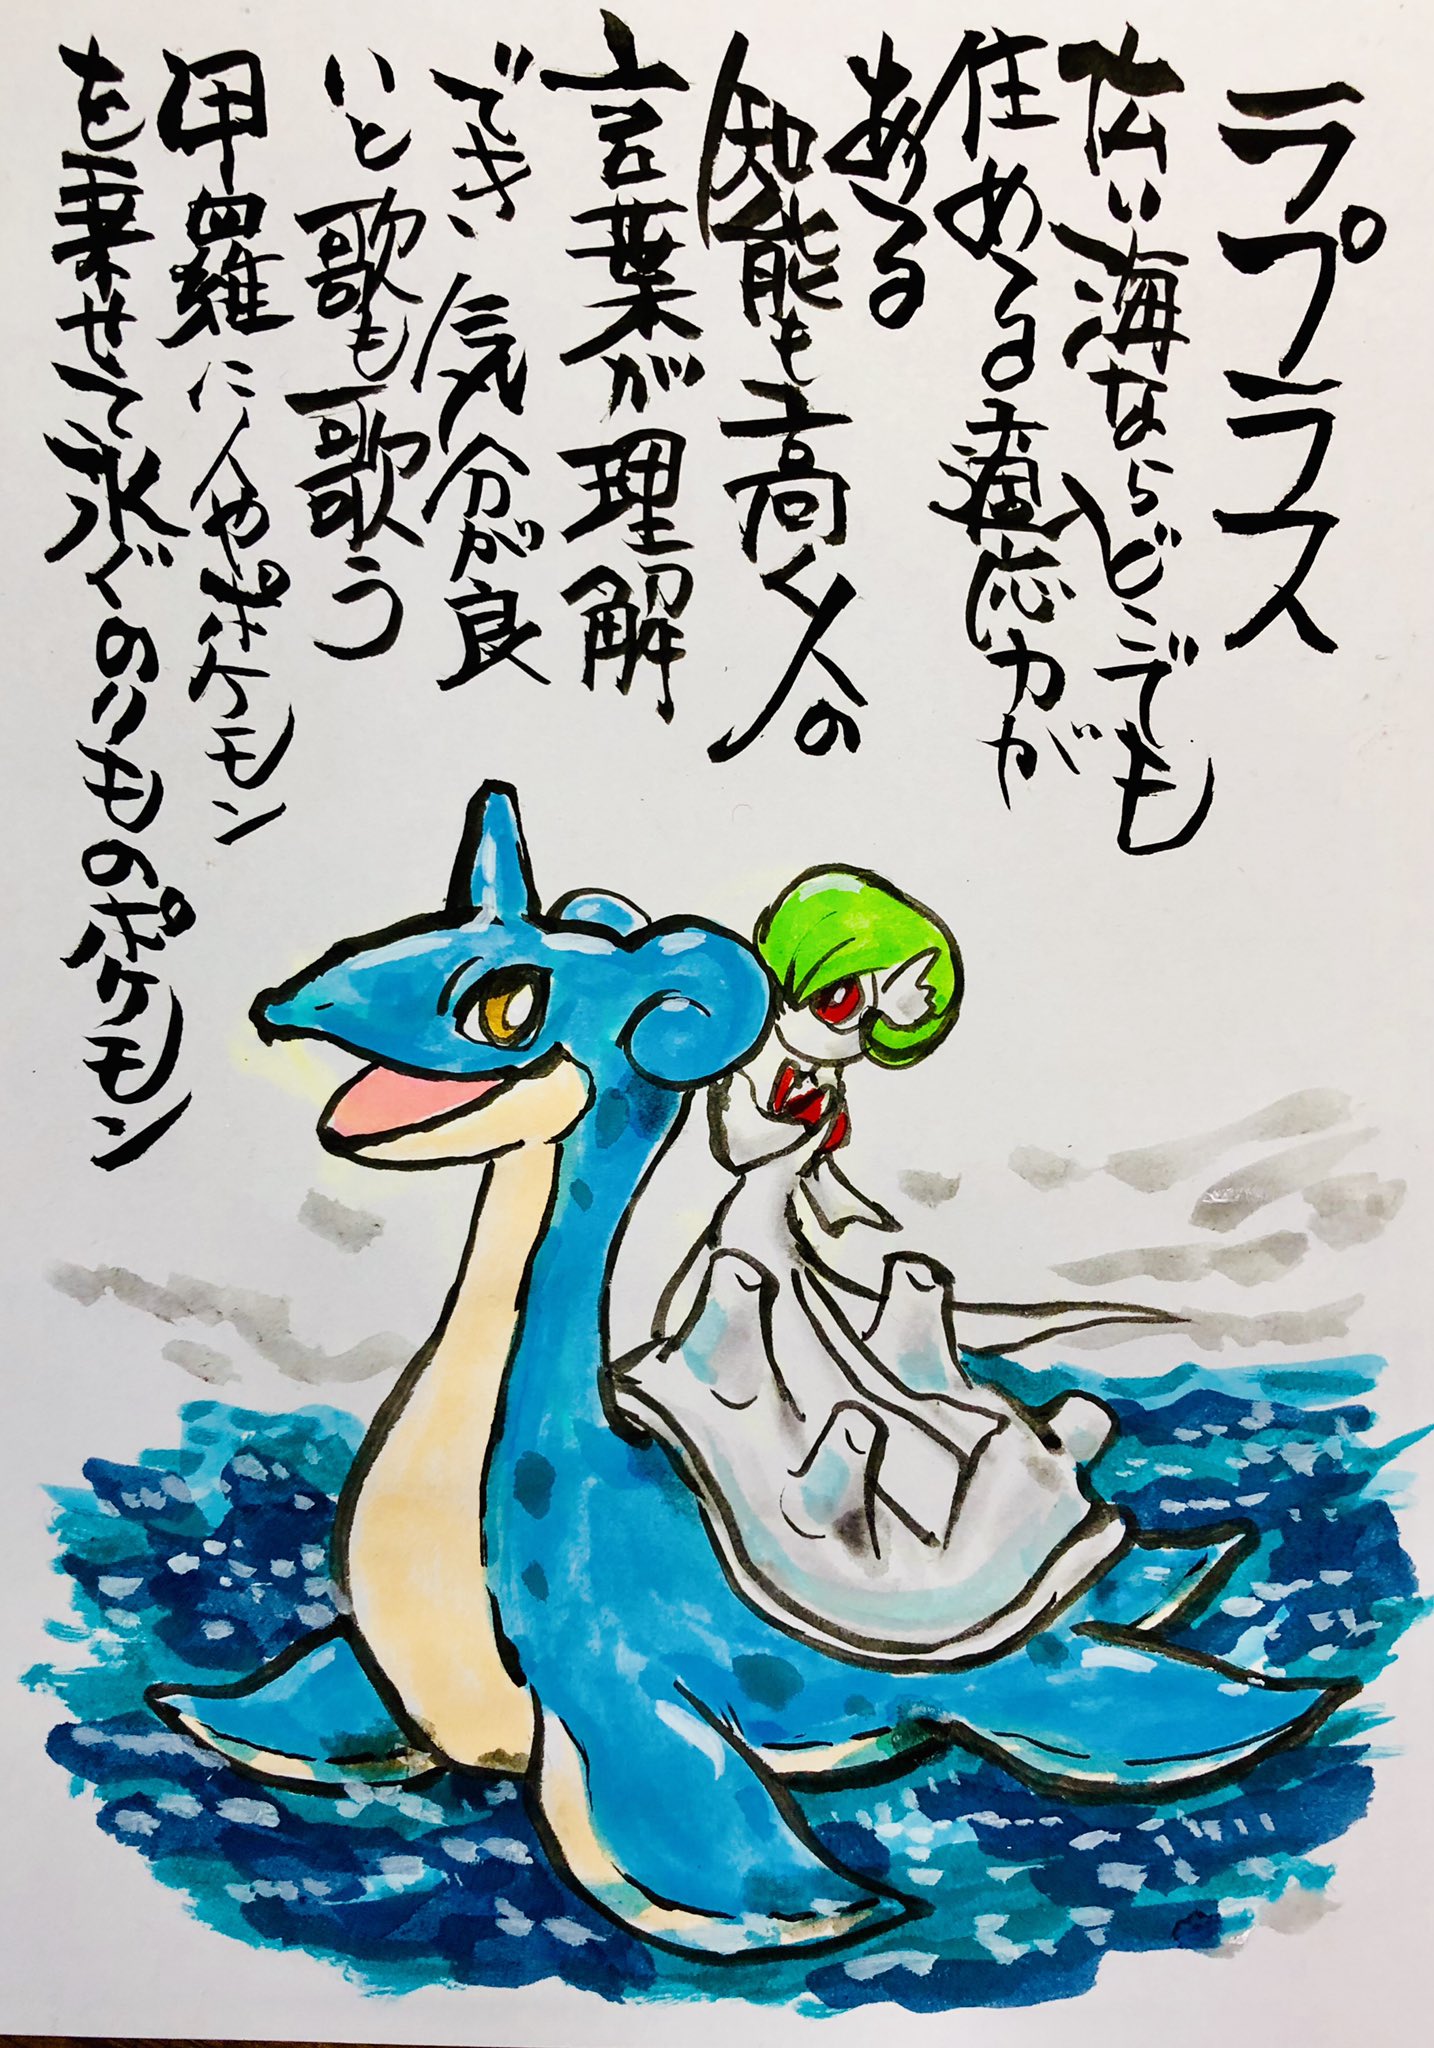 ラプラス
広い海ならどこでも
住める適応力が
ある
知能も高く人の
言葉が理解
でき、気分が良
いと歌も歌う
甲羅に人やポケモン
を乗せて泳ぐのりものポケモン